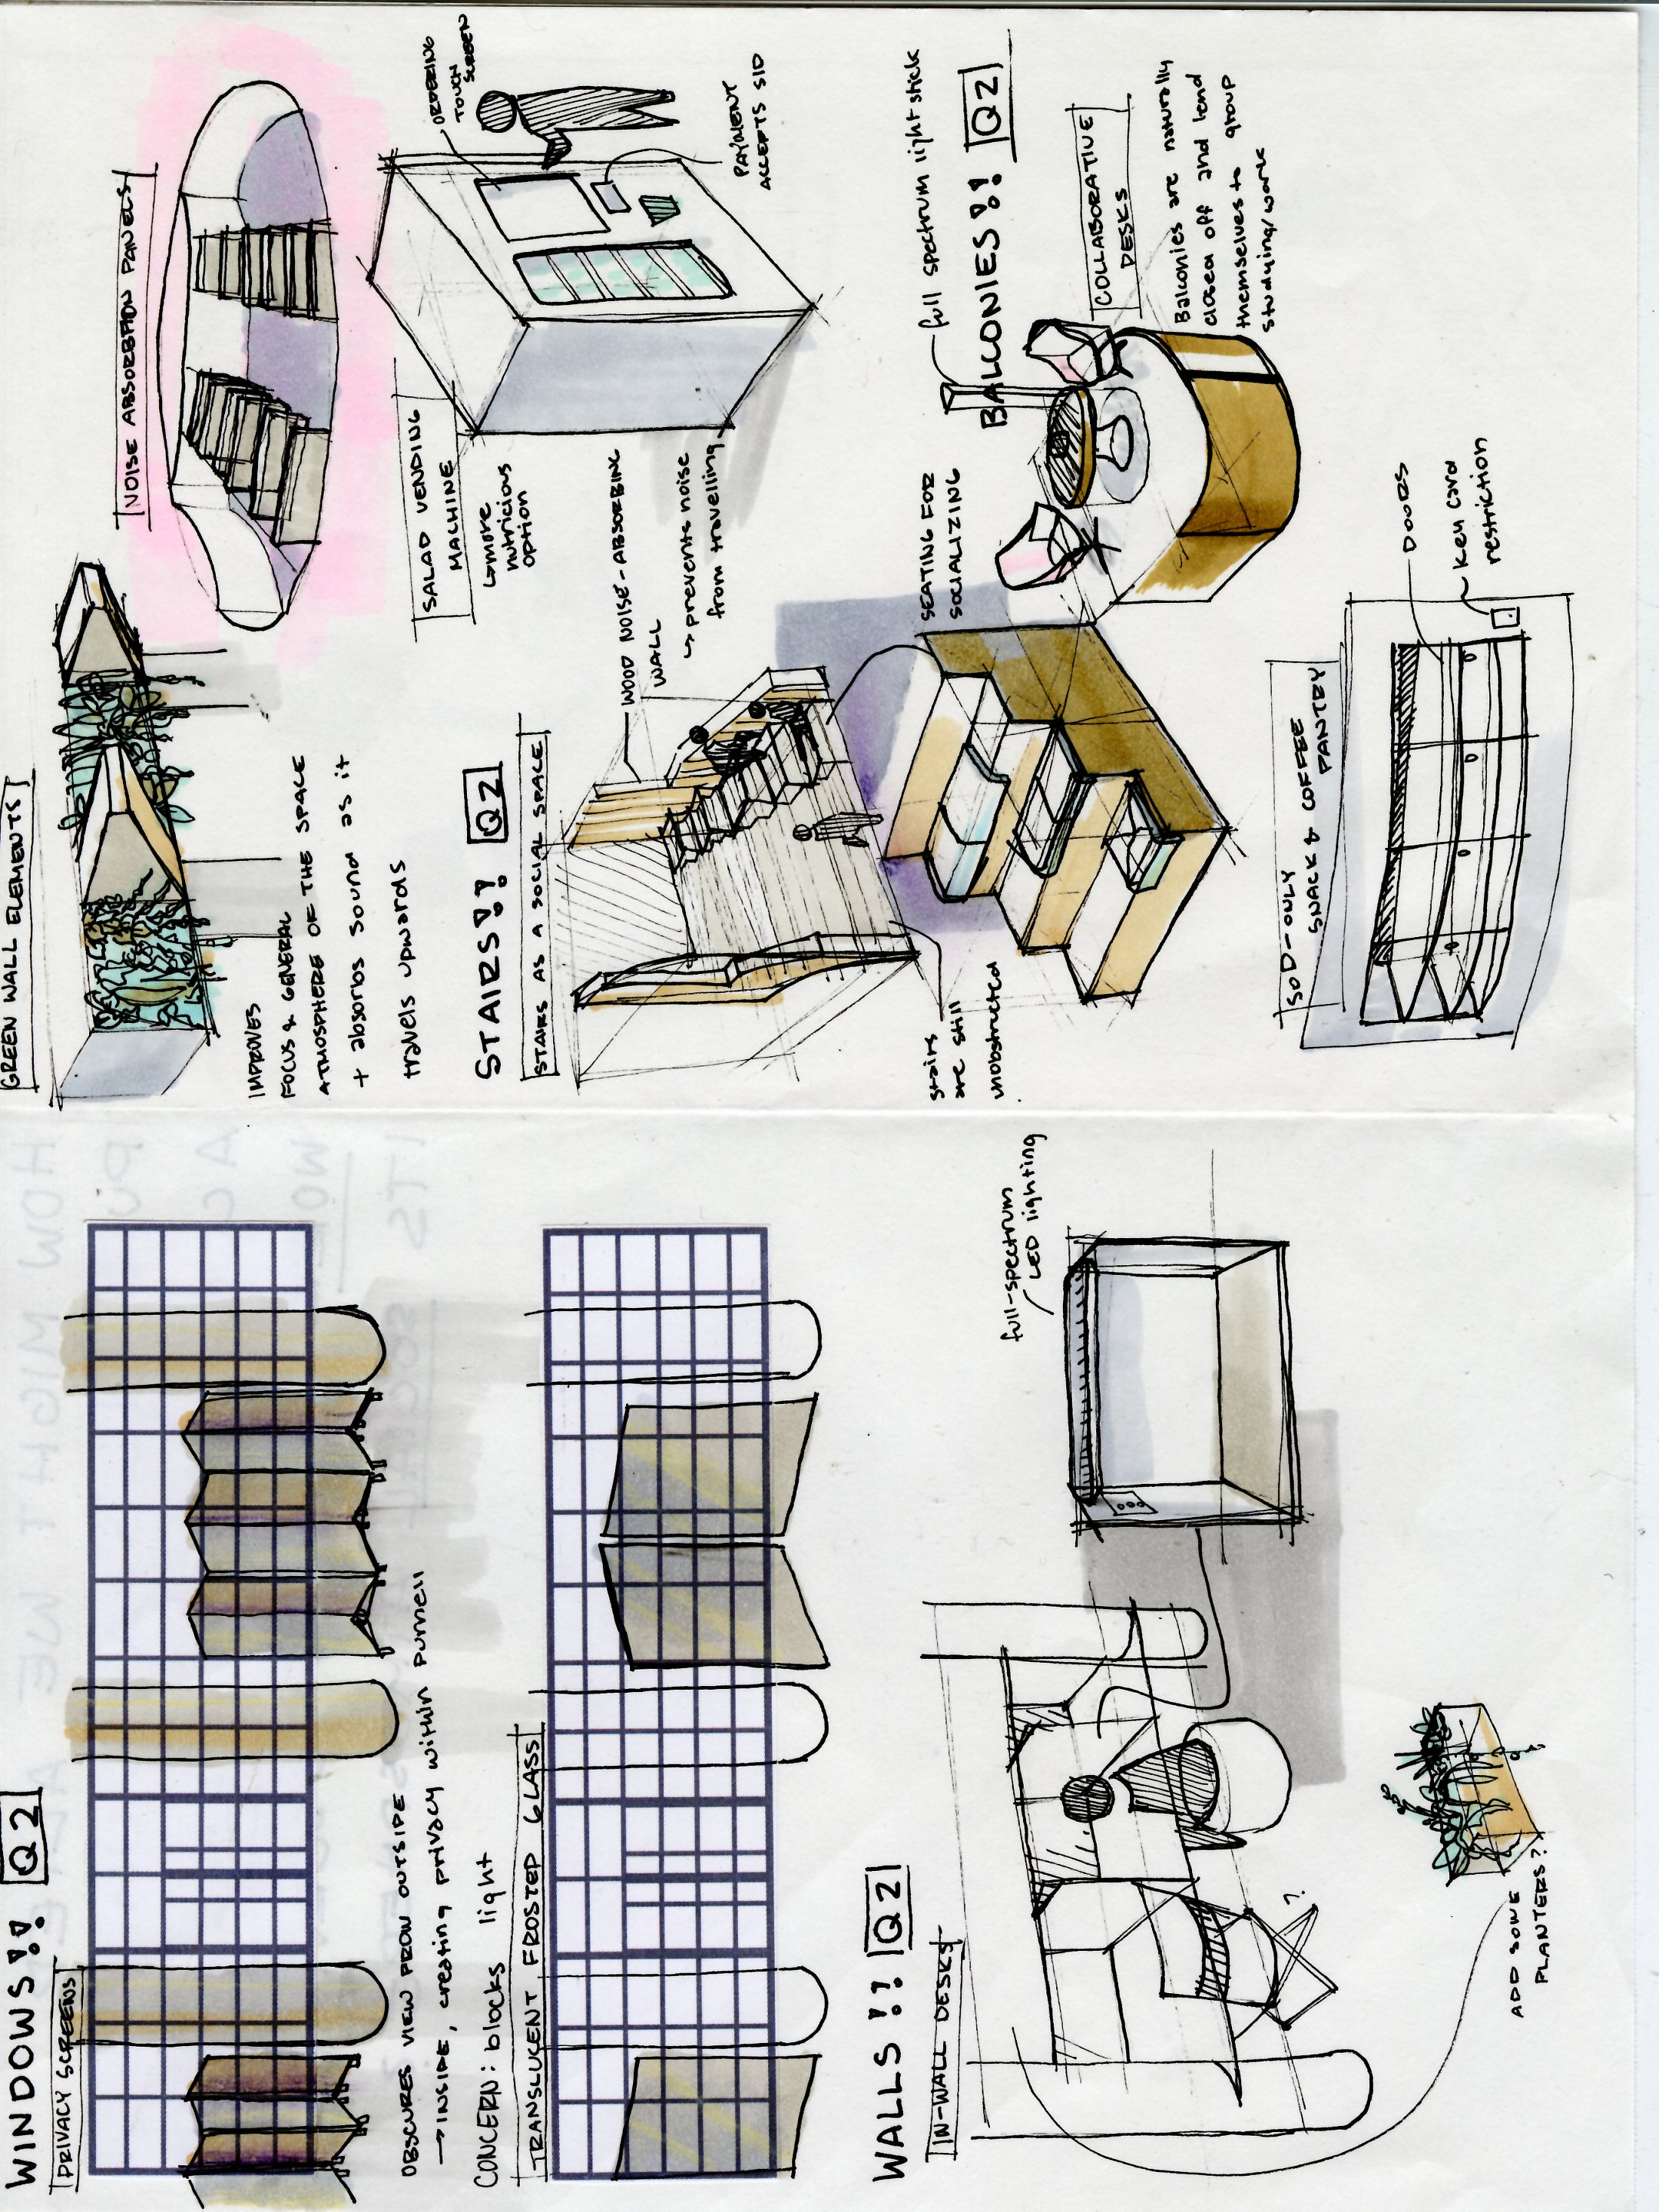 WINDOWS!! Q2
PRIVACY SCREENS
OBSCURES VIEW FROM OUTSIDE
→ INSIDE, creating privacy within Purnell
CONCERN: blocks light
TRANSLUCENT FROSTED GLASS
WALLS!! Q2
IN-WALL DESKS
full-spectrum
LED lighting
?
ADD SOME
PLANTERS?
GREEN WALL ELEMENTS
IMPROVES
FOCUS & GENERAL
ATMOSPHERE OF THE SPACE
+ absorbs sound as it
travels upwards
NOISE ABSORBTION PANELS
SALAD VENDING
MACHINE
↳ more
nutricious
option
ORDERING
TOUCH
SCREEN
PAYMENT
ACCEPTS SID
STAIRS!! Q2
STAIRS AS A SOCIAL SPACE
WOOD NOISE-ABSORBING
WALL
↳ prevents noise
from travelling
stairs
are still
unobstructed
SEATING FOR
SOCIALIZING
full spectrum light stick
BALCONIES!! Q2
COLLABORATIVE
DESKS
Balconies are naturally
closed off and lend
themselves to group
studying/work
SOD-ONLY
SNACK & COFFEE
PANTRY
DOORS
Key card
restriction